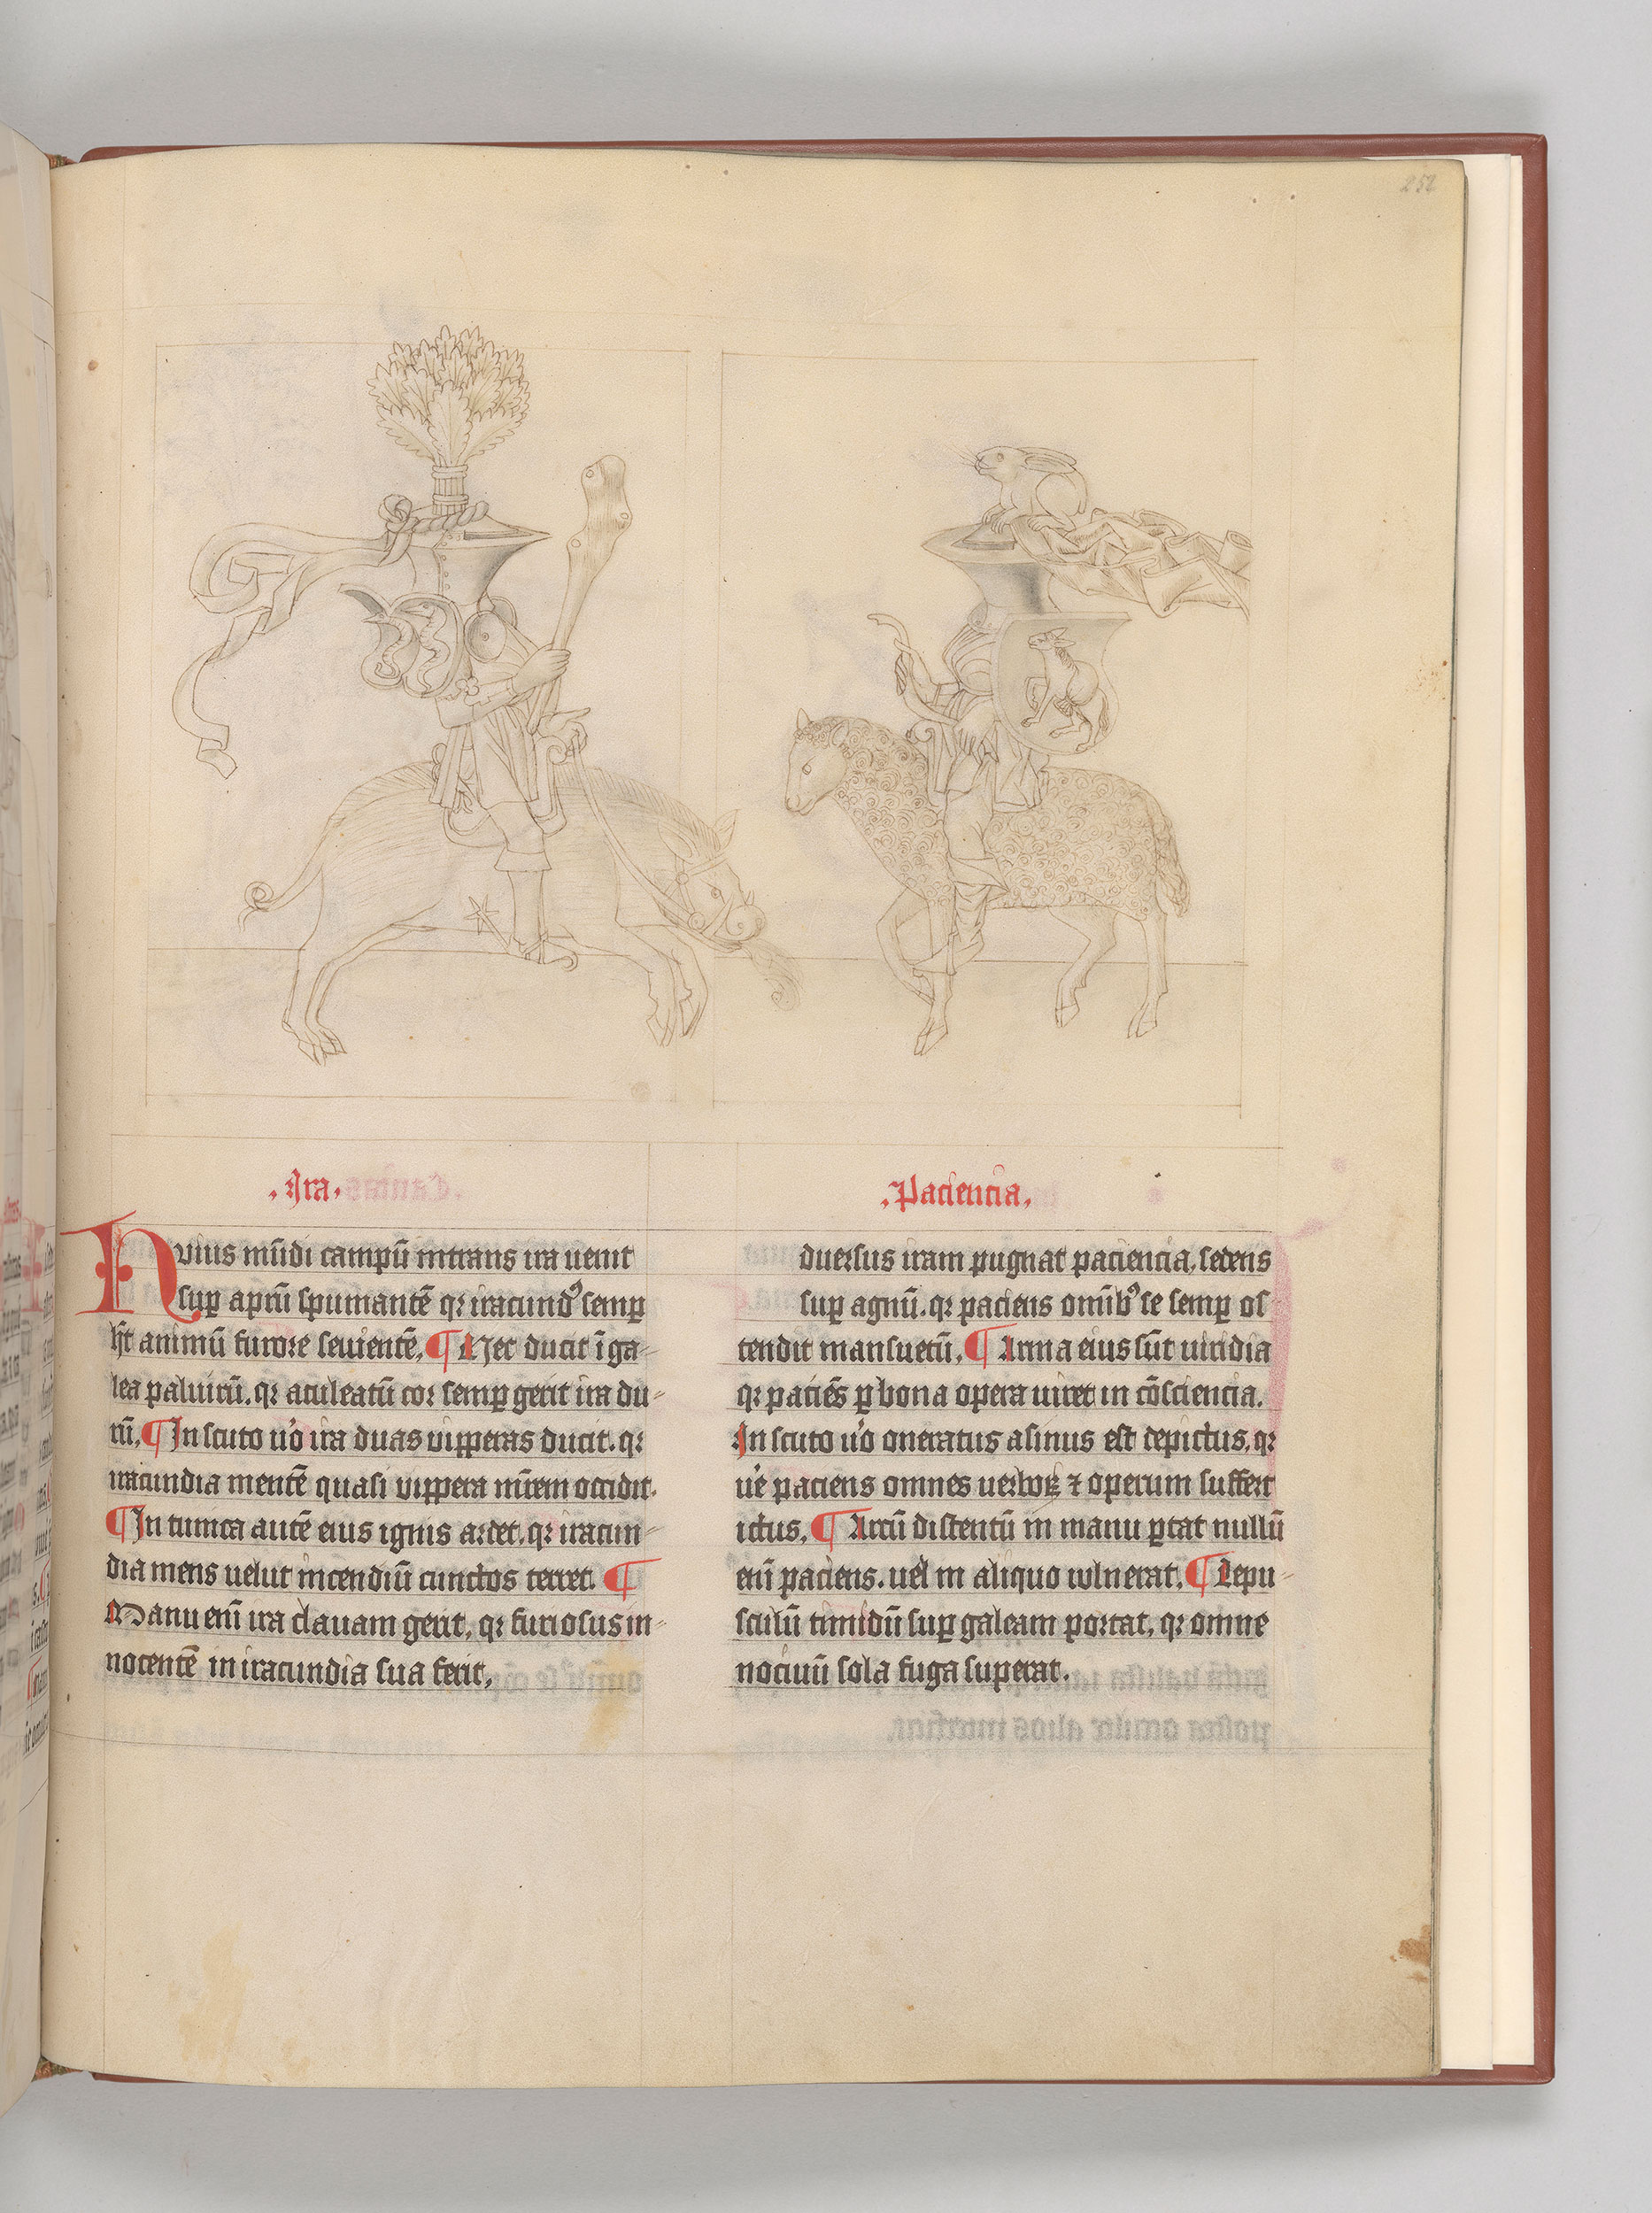 252
.Ira.
Huius mūdi campū intrans ira uenit
sup aprū spumantē qr iracundꝰ semp
ht animū furore seuientē. ¶ Hec ducit ī ga-
lea paluirū. qr aculeatū cor semp gerit ira du-
rū. ¶ In scuto uo ira duas vipperas ducit. qr
iracundia mentē quasi vippera mrem occidit.
¶ In tunica autē eius ignis ardet. qr iracun-
dia mens uelut incendiū cunctos terret. ¶
Manu eni ira clauam gerit. qr furiosus in-
nocentē in iracundia sua ferit.
.Paciencia.
duersus iram pugnat paciencia. sedens
sup agnū. qr paciens omībꝰ se semp os-
tendit mansuetū. ¶ Arma eius sūt uiridia
qr paciēs p bona opera uiret in cōsciencia.
In scuto uo oneratus asinus est depictus. qr
ue paciens omnes uerboꝝ ⁊ operum suffert
ictus. ¶ Arcū distentū in manu ptat nullū
eni paciens. uel in aliquo wlnerat. ¶ Lepu-
sculū timidū sup galeam portat. qr omne
nociuū sola fuga superat.